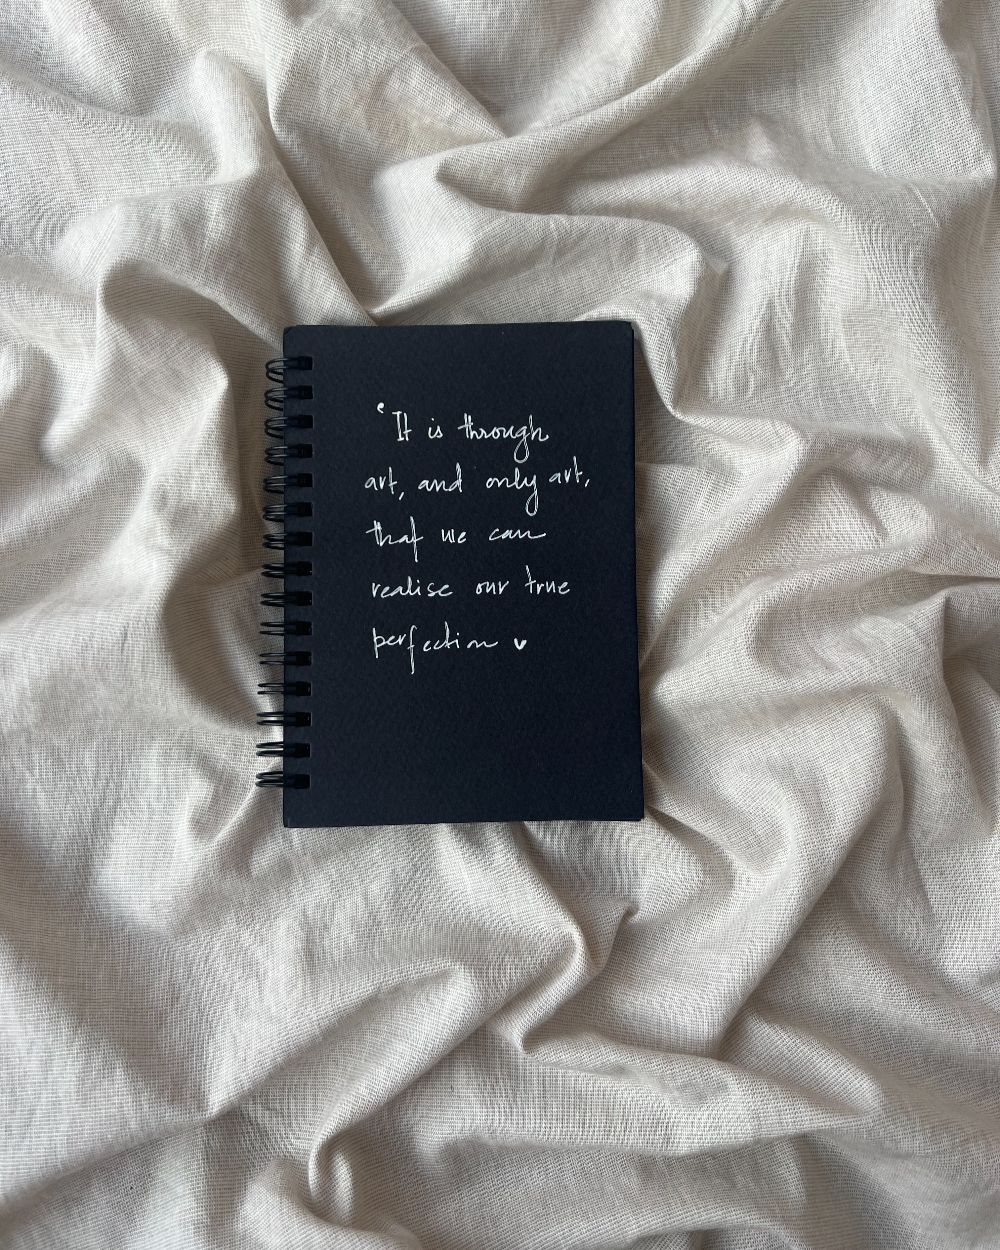 ‘It is through
art, and only art,
that we can
realise our true
perfection